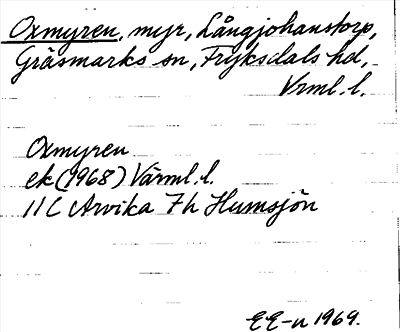 Oxmyren, myr, Långjohanstorp,
Gräsmarks sn, Fryksdals hd,
Vrml. l.
Oxmyren
ek (1968) Värml. l.
11 C Arvika 7 h Humsjön
EE-n 1969.